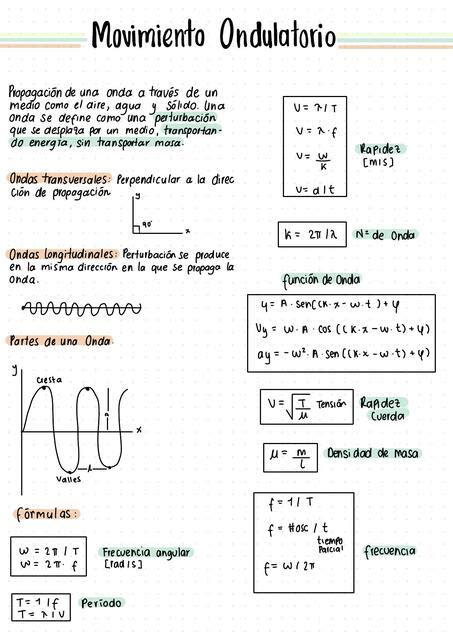 Movimiento Ondulatorio
Propagación de una onda a través de un
medio como el aire, agua y sólido. Una
onda se define como una perturbación
que se desplaza por un medio, transportan-
do energía, sin transportar masa.
Ondas transversales: Perpendicular a la direc
ción de propagación
y
90°
x
Ondas longitudinales: Perturbación se produce
en la misma dirección en la que se propaga la
onda.
Partes de una Onda:
y
Cresta
A
x
λ
Valles
Fórmulas:
ω = 2π / T
ω = 2π · f
Frecuencia angular
[rad/s]
T = 1 / f
T = λ / v
Período
V = λ / T
V = λ · f
V = ω / k
V = d / t
Rapidez
[m/s]
K = 2π / λ
N° de Onda
función de Onda
y = A · sen(k · x - ω · t) + φ
Vy = ω · A · cos ((k · x - ω · t) + φ)
ay = -ω² · A · sen ((k · x - ω · t) + φ)
V = √T / μ Tensión
Rapidez
Cuerda
μ = m / l
Densidad de masa
f = 1 / T
f = #osc / t
tiempo
parcial
f = ω / 2π
frecuencia